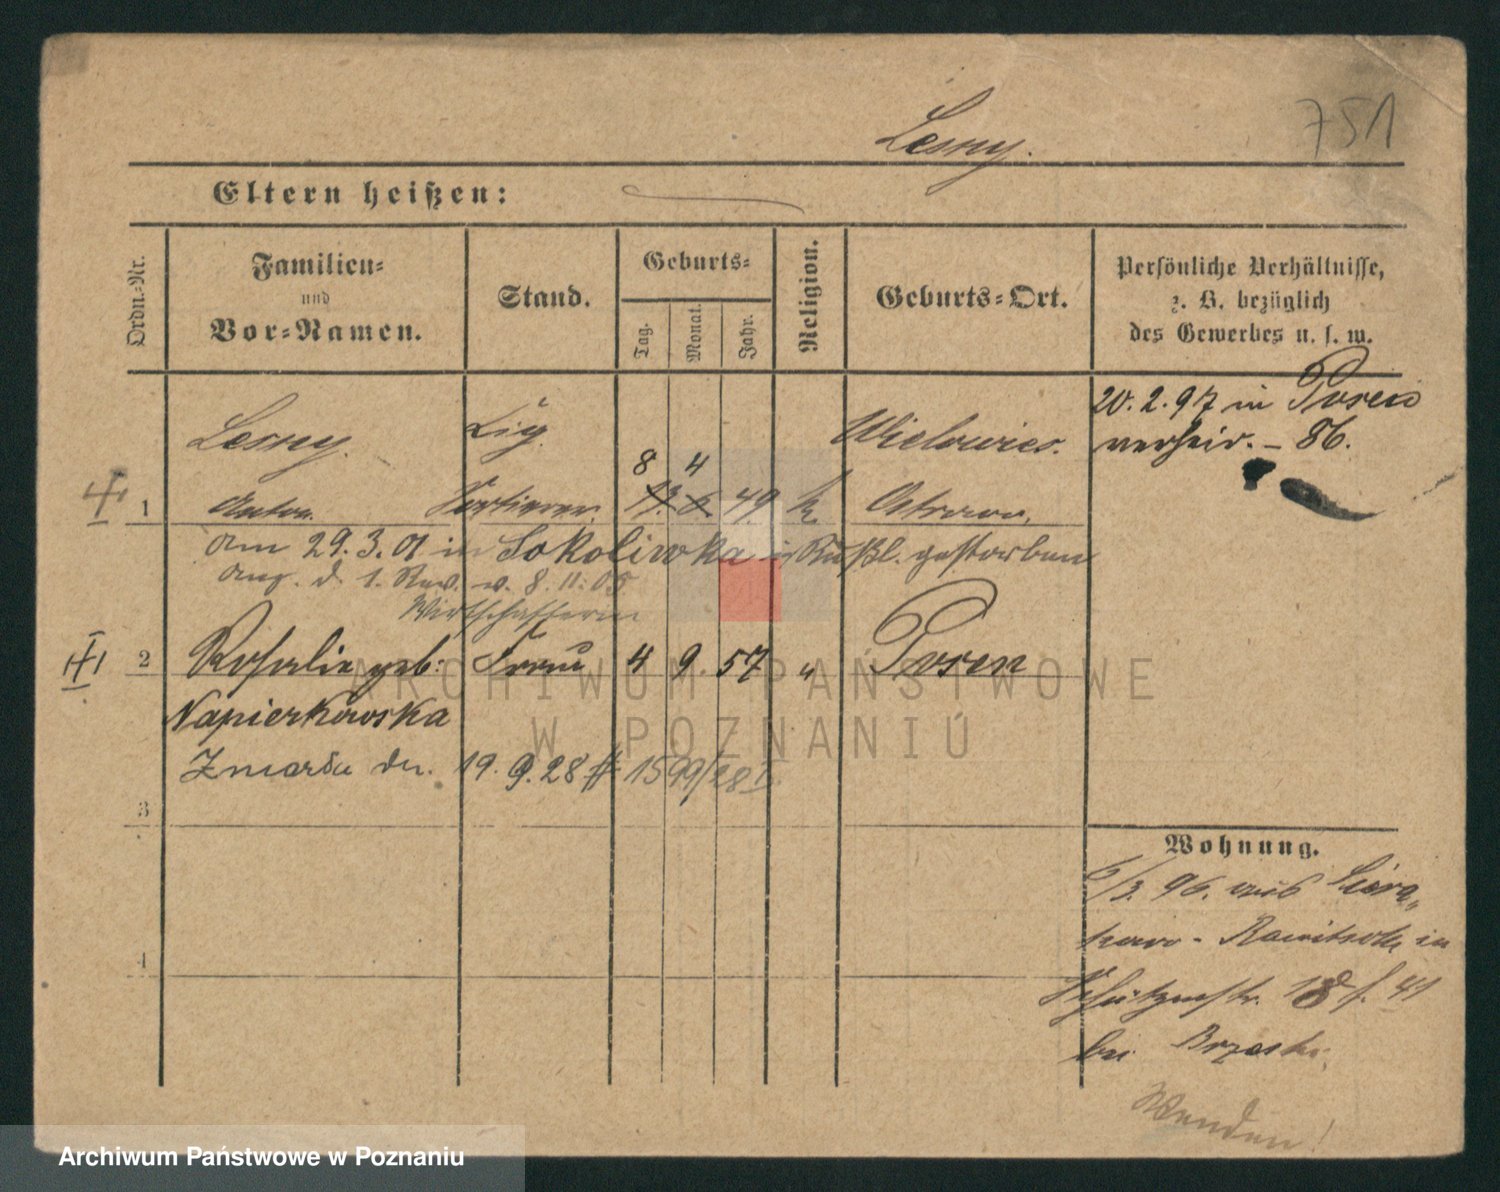 751
Lesny.
Eltern heißen:
Ordn.-Nr.
Familien-
und
Vor-Namen.
Stand.
Geburts-
Tag.
Monat.
Jahr.
Religion.
Geburts-Ort.
Persönliche Verhältnisse,
z. B. bezüglich
des Gewerbes u. s. w.
Lesny.
Zig.
Wielowies.
20.2.97 in Posen
verheir. - 86.
8 4
1 Anton. 49 k Ostrowo.
am 29.3.01 in Sokoliwka in Rußl. gestorben
ang. d. 1. Rev. v. 8.11.05
Wirtschafterin
2 Rosalie geb: Frau 4 9. 57 " Posen
Napierkowska
Zmarła dn. 19.9.28 # 1599/28 I.
3
4
Wohnung.
6/3. 96. aus Siera-
kowo - Rawitsch in
Schützenstr. 18 f. 41
bei Brzeski.
Wenden!
ARCHIWUM PAŃSTWOWE
W POZNANIU
Archiwum Państwowe w Poznaniu